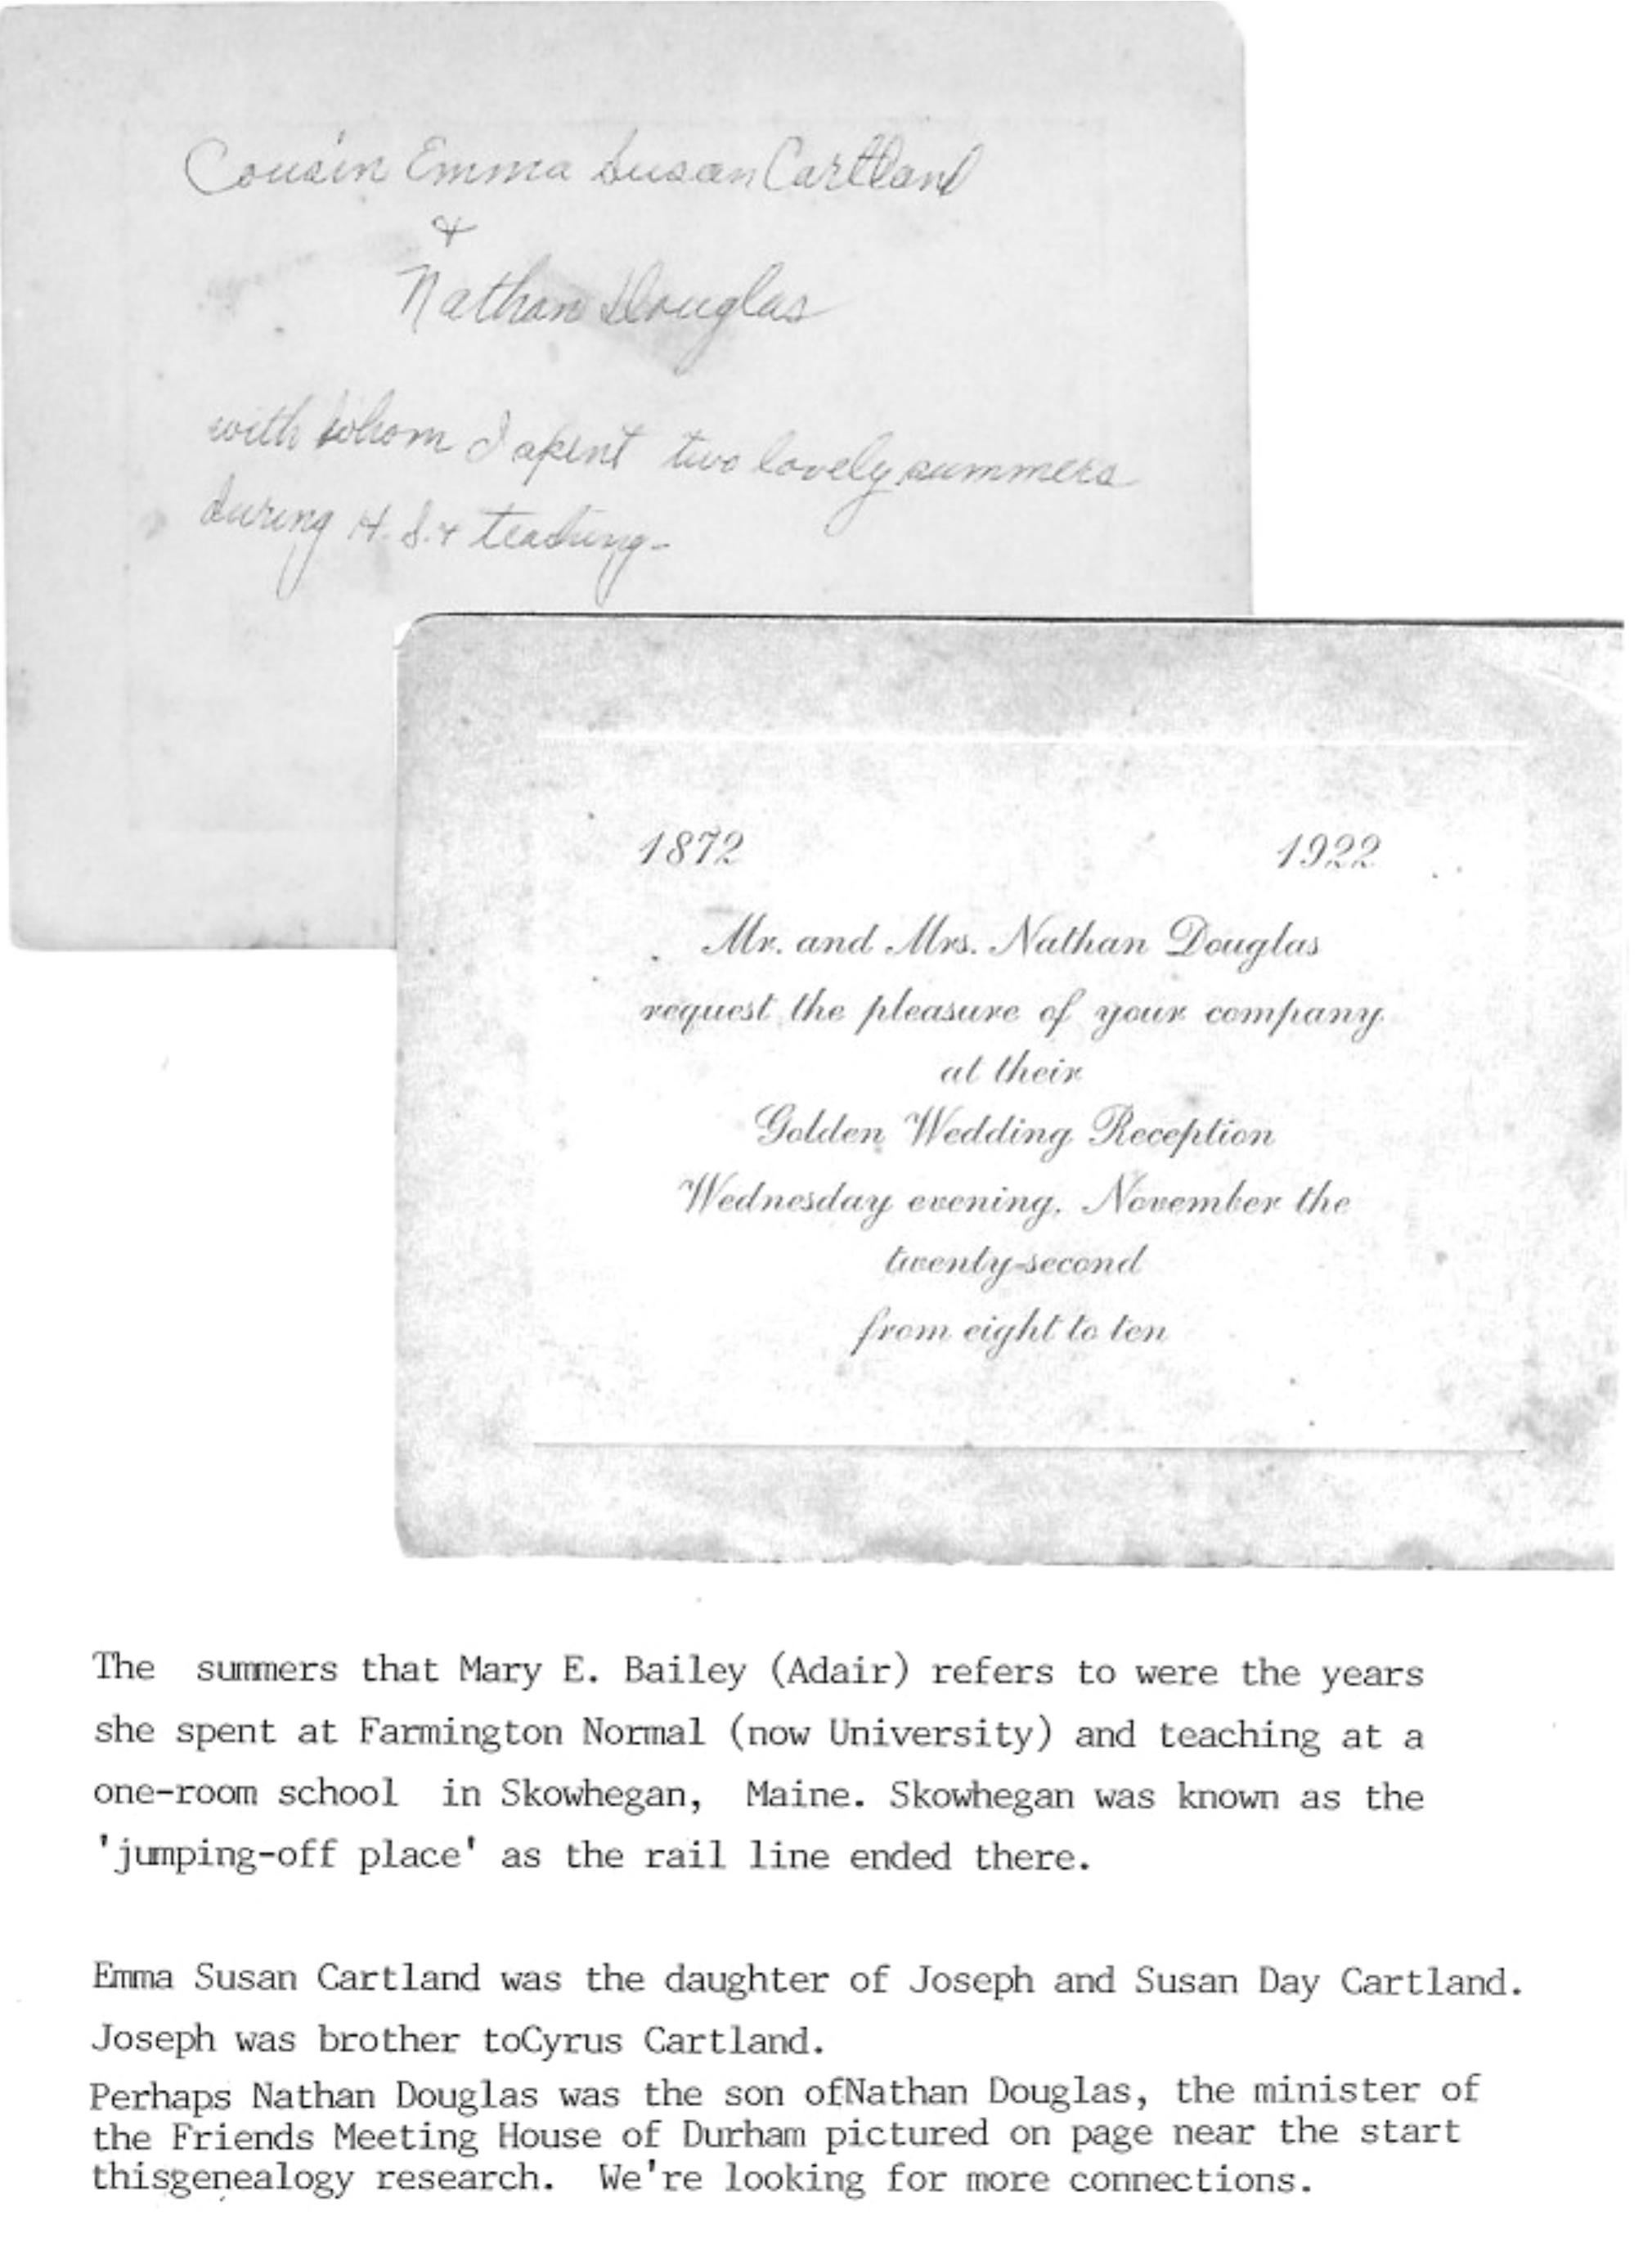 Cousin Emma Susan Cartland
&
Nathan Douglas
with whom I spent two lovely summers
during H. S. & teaching-
1872 1922
Mr. and Mrs. Nathan Douglas
request the pleasure of your company
at their
Golden Wedding Reception
Wednesday evening, November the
twenty-second
from eight to ten
The summers that Mary E. Bailey (Adair) refers to were the years
she spent at Farmington Normal (now University) and teaching at a
one-room school in Skowhegan, Maine. Skowhegan was known as the
'jumping-off place' as the rail line ended there.
Emma Susan Cartland was the daughter of Joseph and Susan Day Cartland.
Joseph was brother toCyrus Cartland.
Perhaps Nathan Douglas was the son ofNathan Douglas, the minister of
the Friends Meeting House of Durham pictured on page near the start
thisgenealogy research. We're looking for more connections.